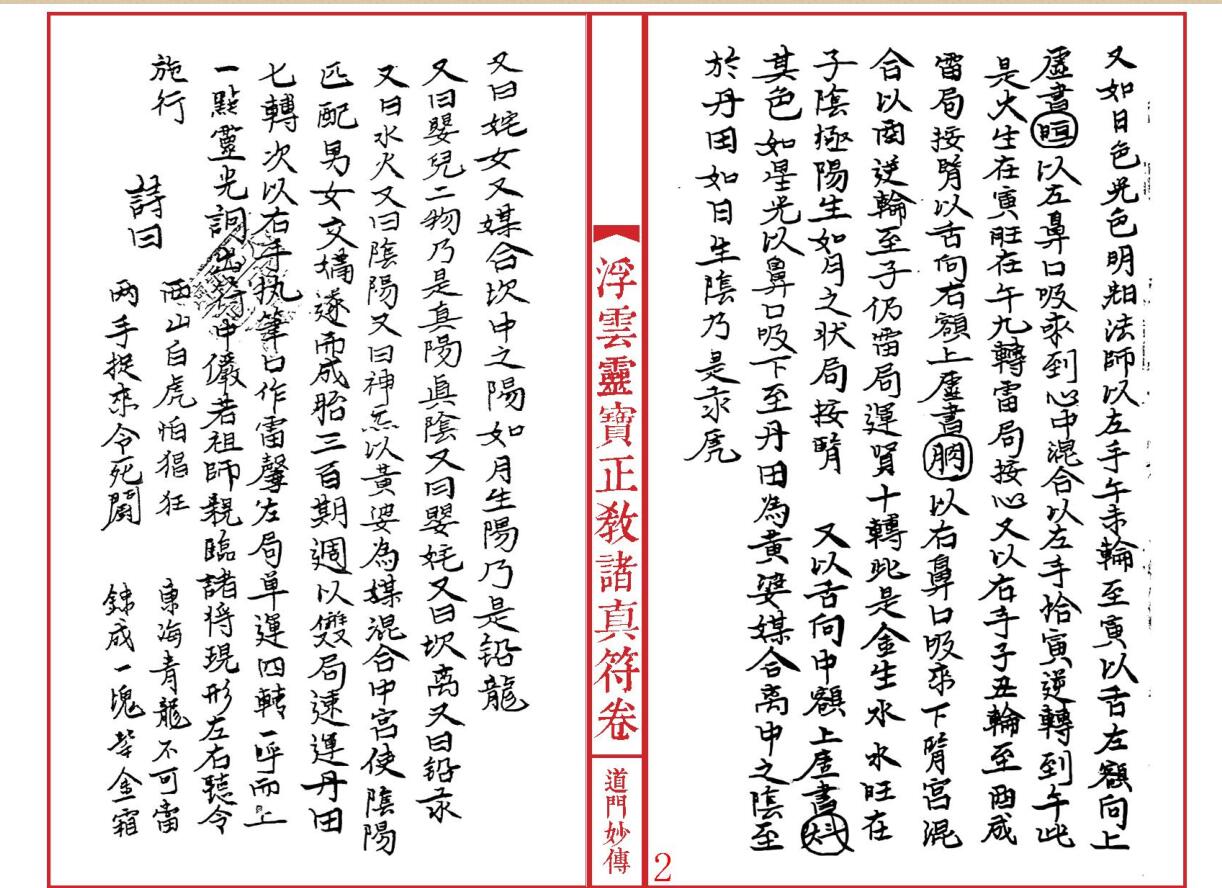 又如日色光色明朗法師以左手午未輪至寅以舌左額向上
虛書𣅳以左鼻口吸汞到心中混合以左手恰寅逆轉到午此
是火生在寅旺在午九轉雷局按心又以右手子丑輪至酉成
雷局按腎以舌向右額上虛書 以右鼻口吸來下腎宮混
合以酉逆輪至子仍雷局運腎十轉此是金生水水旺在
子陰極陽生如月之狀局按腎 又以舌向中額上虛書
其色如星光以鼻口吸下至丹田為黃婆媒合离中之陰至
於丹田如日生陰乃是汞虎
浮雲靈寶正教諸真符卷
道門妙傳
2
又曰姹女又媒合坎中之陽如月生陽乃是鉛龍
又曰嬰兒二物乃是真陽真陰又曰嬰姹又曰坎离又曰鉛汞
又曰水火又曰陰陽又曰神炁以黃婆為媒混合中宮使陰陽
匹配男女交媾遂而成胎三百期週以雙局速運丹田
七轉次以右手執筆口作雷聲左局單運四轉一呼而上
一點靈光 出符中儼若祖師親臨諸將現形左右聽令
施行
詩曰
西山白虎怕猖狂 東海青龍不可當
两手捉來令死鬭 鍊成一塊紫金霜